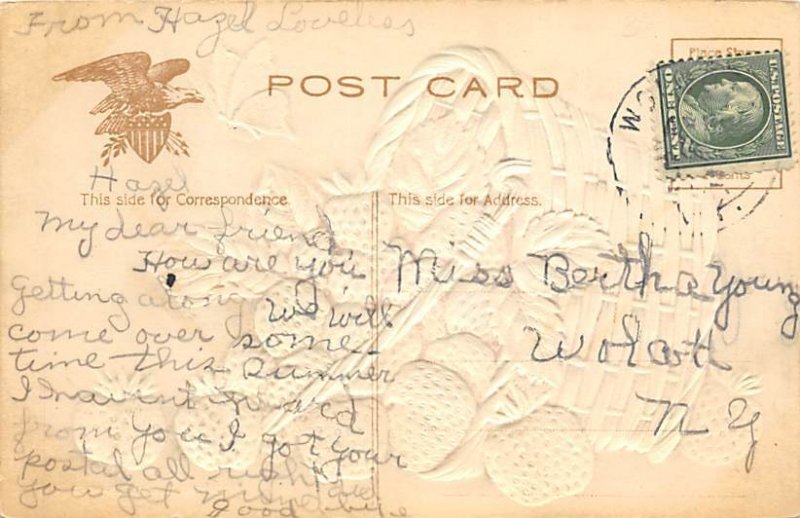 From Hazel Loveless
POST CARD
Place Stamp
U.S. POSTAGE
ONE CENT
Hazel
This side for Correspondence.
This side for Address.
My dear friend
How are you
Getting along We will
come over some
time this summer
I havint heard
from you I got your
postal all right
you get mine
good bye
Miss Bertha Young
Wolcott
N Y